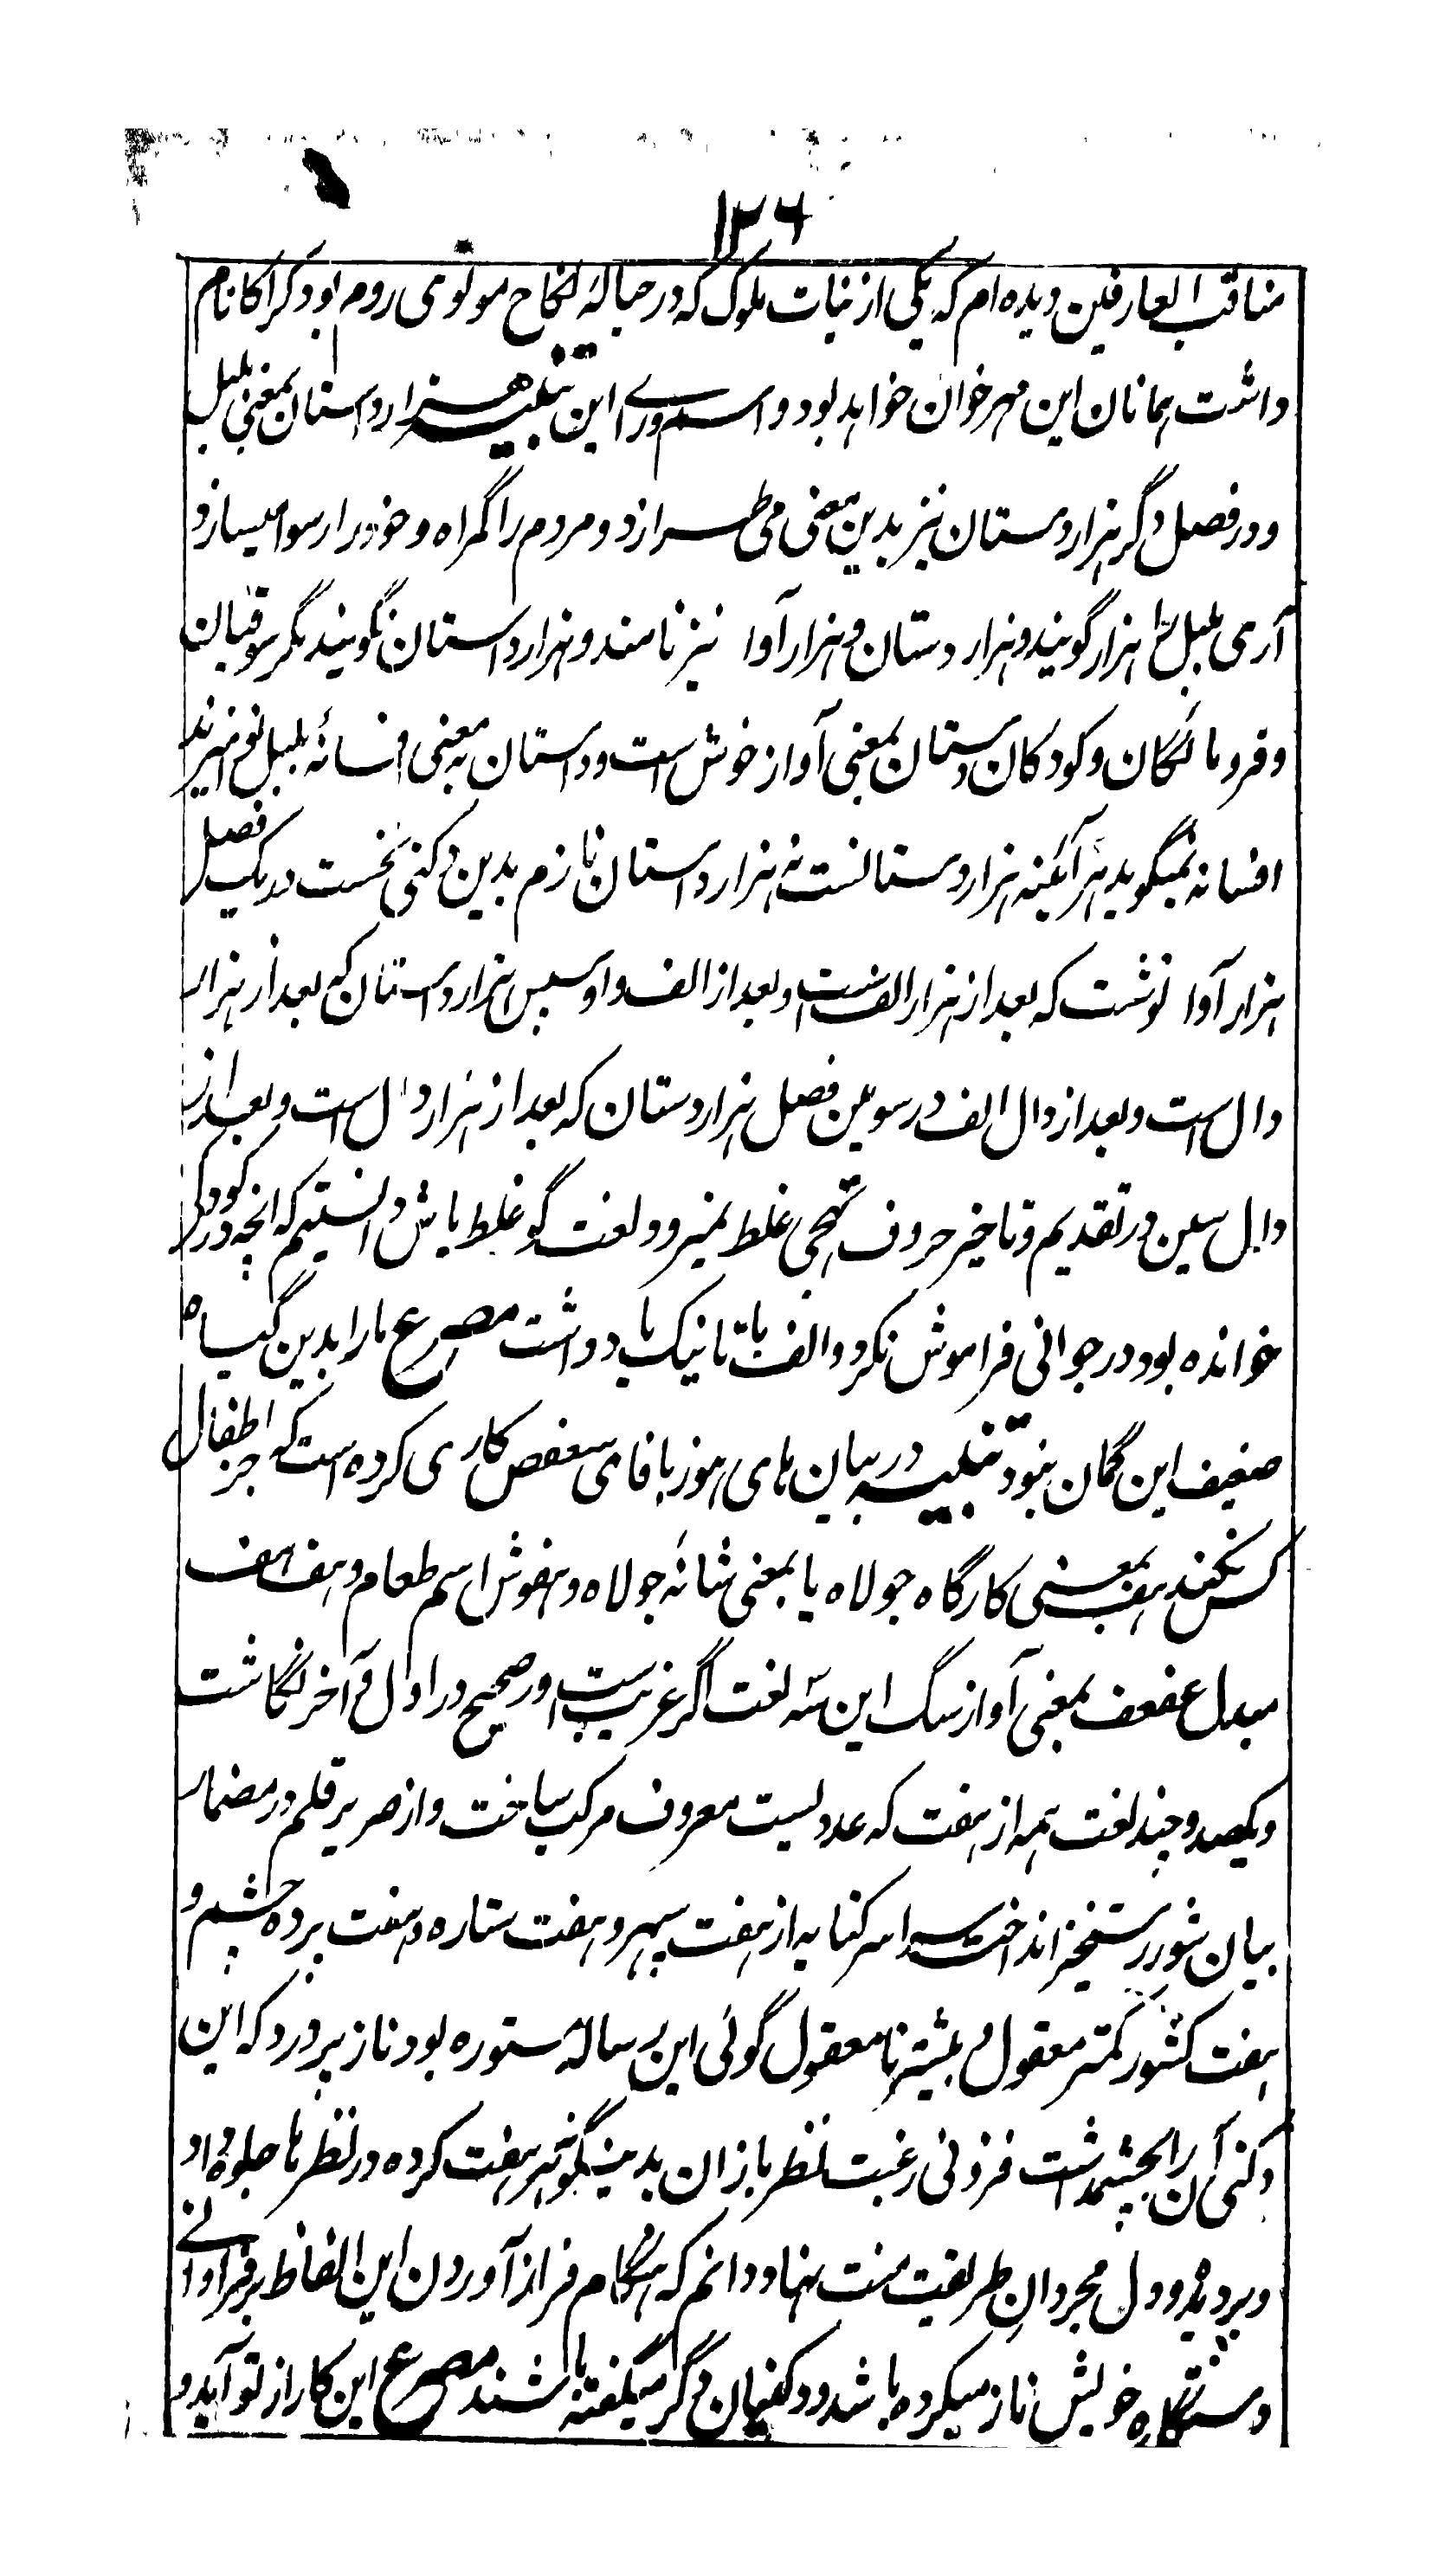 ۱۲۶
مناقب العارفین دیده ام که یکی از بنات ملوک که در حبالهٔ نکاح مولوی روم بود کراکا نام
داشت همانان این مهر خوان خواهد بود و اسم وری این تنبیه هزار داستان بمعنی بلبل
و در فصل دگر هزار دستان نیز بدین معنی می طرازد و مردم را گمراه و خود را رسوا میسازد
آری بلبل را هزار گویند و هزار دستان و هزار آوا نیز نامند و هزار داستان نگویند مگر سوقیان
و فرومایگان و کودکان دستان بمعنی آواز خوش است و داستان به معنی افسانهٔ بلبل نوا میزند
افسانه نمیگوید هر آئینه هزار دستانست نه هزار داستان نازم بدین دکنی نخست در یک فصل
هزار آوا نوشت که بعد از هزار الف است و بعد از الف واو سپس هزار داستان که بعد از هزار
دال است و بعد از دال الف در سومین فصل هزار دستان که بعد از هزار دال است و بعد از
دال سین در تقدیم و تاخیر حروف تهجی غلط نمیرود لغت گو غلط باش دانستیم که انچه در کودکی
خوانده بود در جوانی فراموش نکرد و الف با تا نیک یاد داشت مصرع ما را بدین گیاه
ضعیف این گمان نبود تنبیه در بیان های هوز با فای سعفص کاری کرده است که جز اطفال
کس نکند هف بمعنی کارگاه جولاه یا بمعنی شانهٔ جولاه و هفوش اسم طعام و هف هف
مبدل عفعف بمعنی آواز سگ این سه لغت اگر غریب است و ر صحیح در اول و آخر نگاشت
و یکصد و چند لغت همه از هفت که عددیست معروف مرکب ساخت و از صریر قلم در مضمار
بیان شور رستخیز انداخت سراسر کنایه از هفت سپهر و هفت ستاره و هفت پرده چشم و
هفت کشور کمتر معقول و بیشتر نامعقول گوئی این رساله ستوره بود ناز پرورد که این
دکنی آن را بچشمداشت فزونی رغبت نظر بازان بدینگونه هر هفت کرده در نظر ها جلوه داد
و بر دیده و دل مجردان طریقت منت نهاد و دانم که هنگام فراز آوردن این الفاظ بر فراوانی
دستگاه خویش ناز میکرده باشد و دکنیان دگر میگفته باشند مصرع این کار از تو آید و